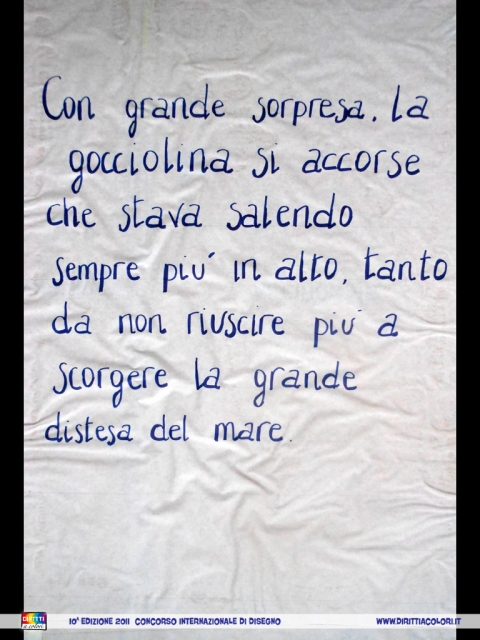 Con grande sorpresa, la
gocciolina si accorse
che stava salendo
sempre piu' in alto, tanto
da non riuscire piu' a
scorgere la grande
distesa del mare.
DIRITTI
a colori
10ª EDIZIONE 2011 CONCORSO INTERNAZIONALE DI DISEGNO
WWW.DIRITTIACOLORI.IT